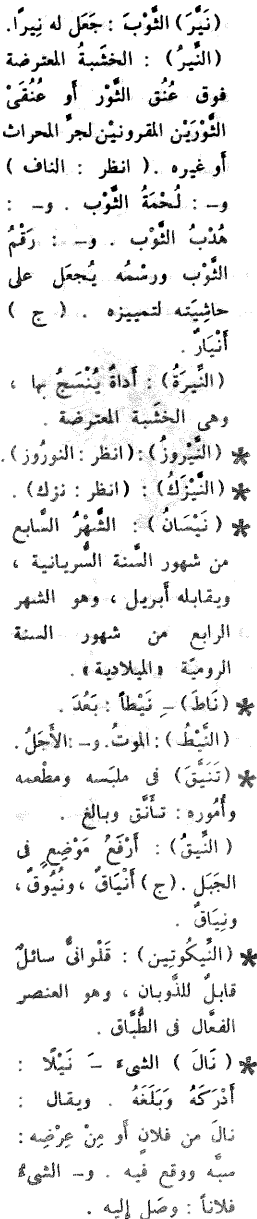 (نَيَّرَ) الثَّوْبَ : جَعَل له نِيرًا.
(النِّيرُ) : الخشَبةُ المعترضة
فوق عُنُق الثَّوْر أو عُنُقَىْ
الثَّوْرَيْن المقرونيْن لجرِّ المحراث
أو غيره . ( انظر : الناف )
و- : لُحْمَةُ الثَّوْب . و- :
هُدْبُ الثَّوْب . و- : رَقْمُ
الثَّوْب ورسْمُه يُجعَل على
حاشِيَته لتمييزه . ( ج )
أَنْيَارٌ .
(النِّيرَةُ) : أداةٌ يُنْسَجُ بها ،
وهى الخشَبة المعترضة .
* (النَّيْروزُ) : (انظر : النورُوز) .
* (النَّيْزَكُ) : (انظر : نزك) .
* (نَيْسَانُ) : الشَّهْرُ السَّابع
من شهور السَّنة السُّريانية ،
ويقابله أبريل ، وهو الشهر
الرابع من شهور السنة
الروميّة «الميلادية» .
* (نَاطَ) -ِ نَيْطاً : بَعُدَ .
(النَّيْطُ) : الموتُ. و- : الأَجَلُ.
* (تَنَيَّقَ) فى ملبَسه ومطْعمه
وأُمُوره : تأَنَّق وبالغ .
( النِّيقُ ) : أَرْفَعُ مَوْضِعٍ فى
الجَبَل . (ج) أَنْيَاقٌ ، ونُيُوقٌ ،
ونِيَاقٌ .
* (النِّيكُوتِين) : قَلْوانىٌّ سائلٌ
قابلٌ للذَّوبان ، وهو العنصر
الفعَّال فى الطُّبَّاق .
* ( نَالَ ) الشىءَ -َ نَيْلًا :
أَدْرَكَهُ وَبَلَغَهُ . ويقال :
نالَ من فلانٍ أو مِنْ عِرْضِه :
سبَّه ووقع فيه . و- الشىءُ
فلاناً : وصَل إليه .